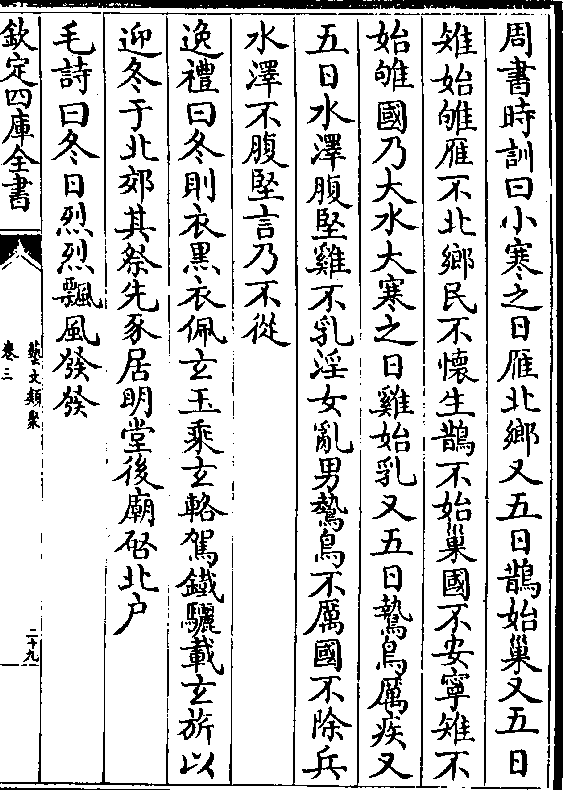 周書時訓曰小寒之日雁北鄉又五日鵲始巢又五日
雉始雊雁不北鄉民不懷生鵲不始巢國不安寧雉不
始雊國乃大水大寒之日雞始乳又五日鷙鳥厲疾又
五日水澤腹堅雞不乳淫女亂男鷙鳥不厲國不除兵
水澤不腹堅言乃不從
逸禮曰冬則衣黑衣佩玄玉乘玄輅駕鐵驪載玄旂以
迎冬于北郊其祭先豕居明堂後廟啓北户
毛詩曰冬日烈烈飄風發發
欽定四庫全書
藝文類聚
卷三
二十九